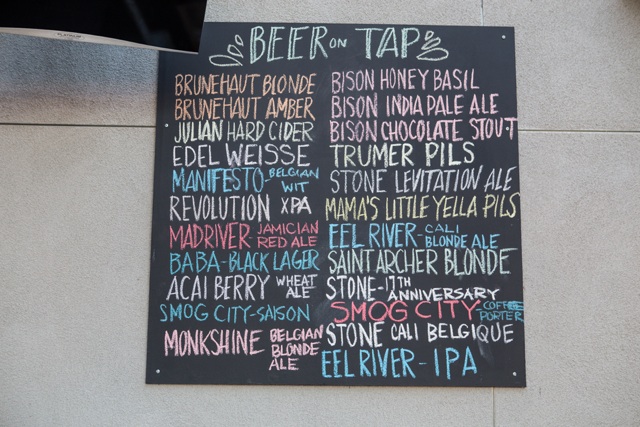 BEER ON TAP
BRUNEHAUT BLONDE
BRUNEHAUT AMBER
JULIAN HARD CIDER
EDEL WEISSE
MANIFESTO - BELGIAN WIT
REVOLUTION XPA
MADRIVER - JAMICIAN RED ALE
BABA - BLACK LAGER
ACAI BERRY WHEAT ALE
SMOG CITY - SAISON
MONKSHINE BELGIAN BLONDE ALE
BISON HONEY BASIL
BISON INDIA PALE ALE
BISON CHOCOLATE STOUT
TRUMER PILS
STONE LEVITATION ALE
MAMA'S LITTLE YELLA PILS
EEL RIVER - CALI BLONDE ALE
SAINT ARCHER BLONDE
STONE - 17TH ANNIVERSARY
SMOG CITY COFFEE PORTER
STONE CALI BELGIQUE
EEL RIVER - IPA